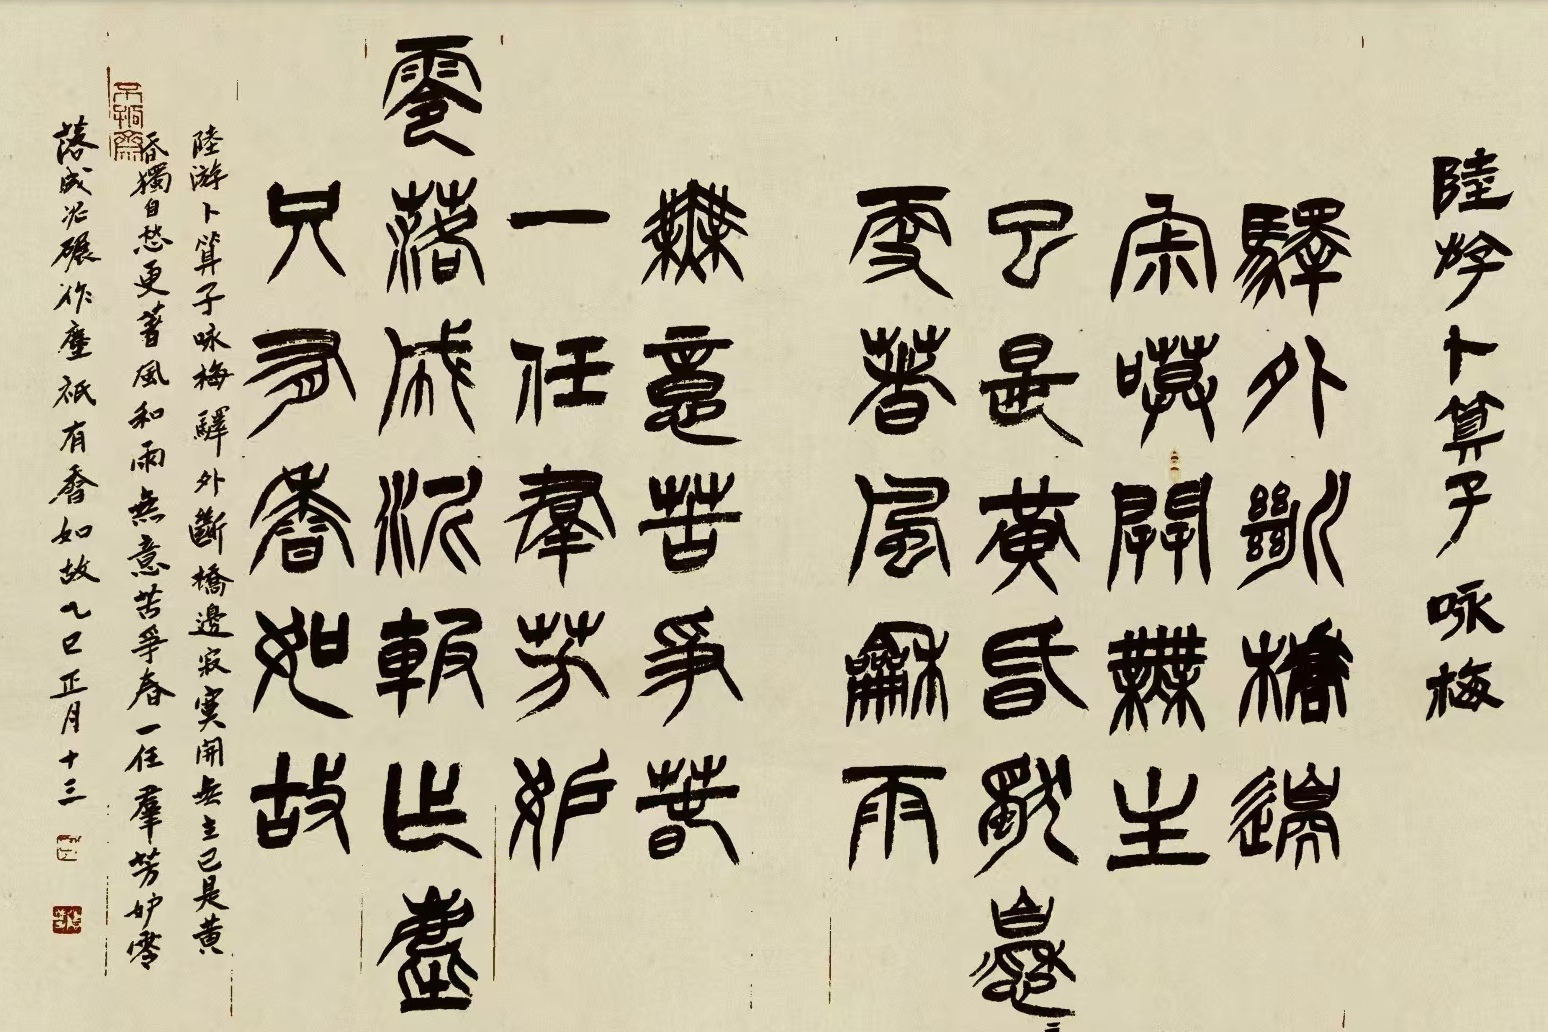 陸斿卜算子 咏梅
驛外斷橋邊
寂嗼開無主
已是黃昏獨自愁
更著風龢雨
無意苦爭春
一任羣芳妒
零落成泥報作塵
只有香如故
陸游卜算子咏梅驛外斷橋邊寂寞開無主已是黃
昏獨自愁更著風和雨無意苦爭春一任羣芳妒零
落成泥碾作塵祇有香如故乙巳正月十三